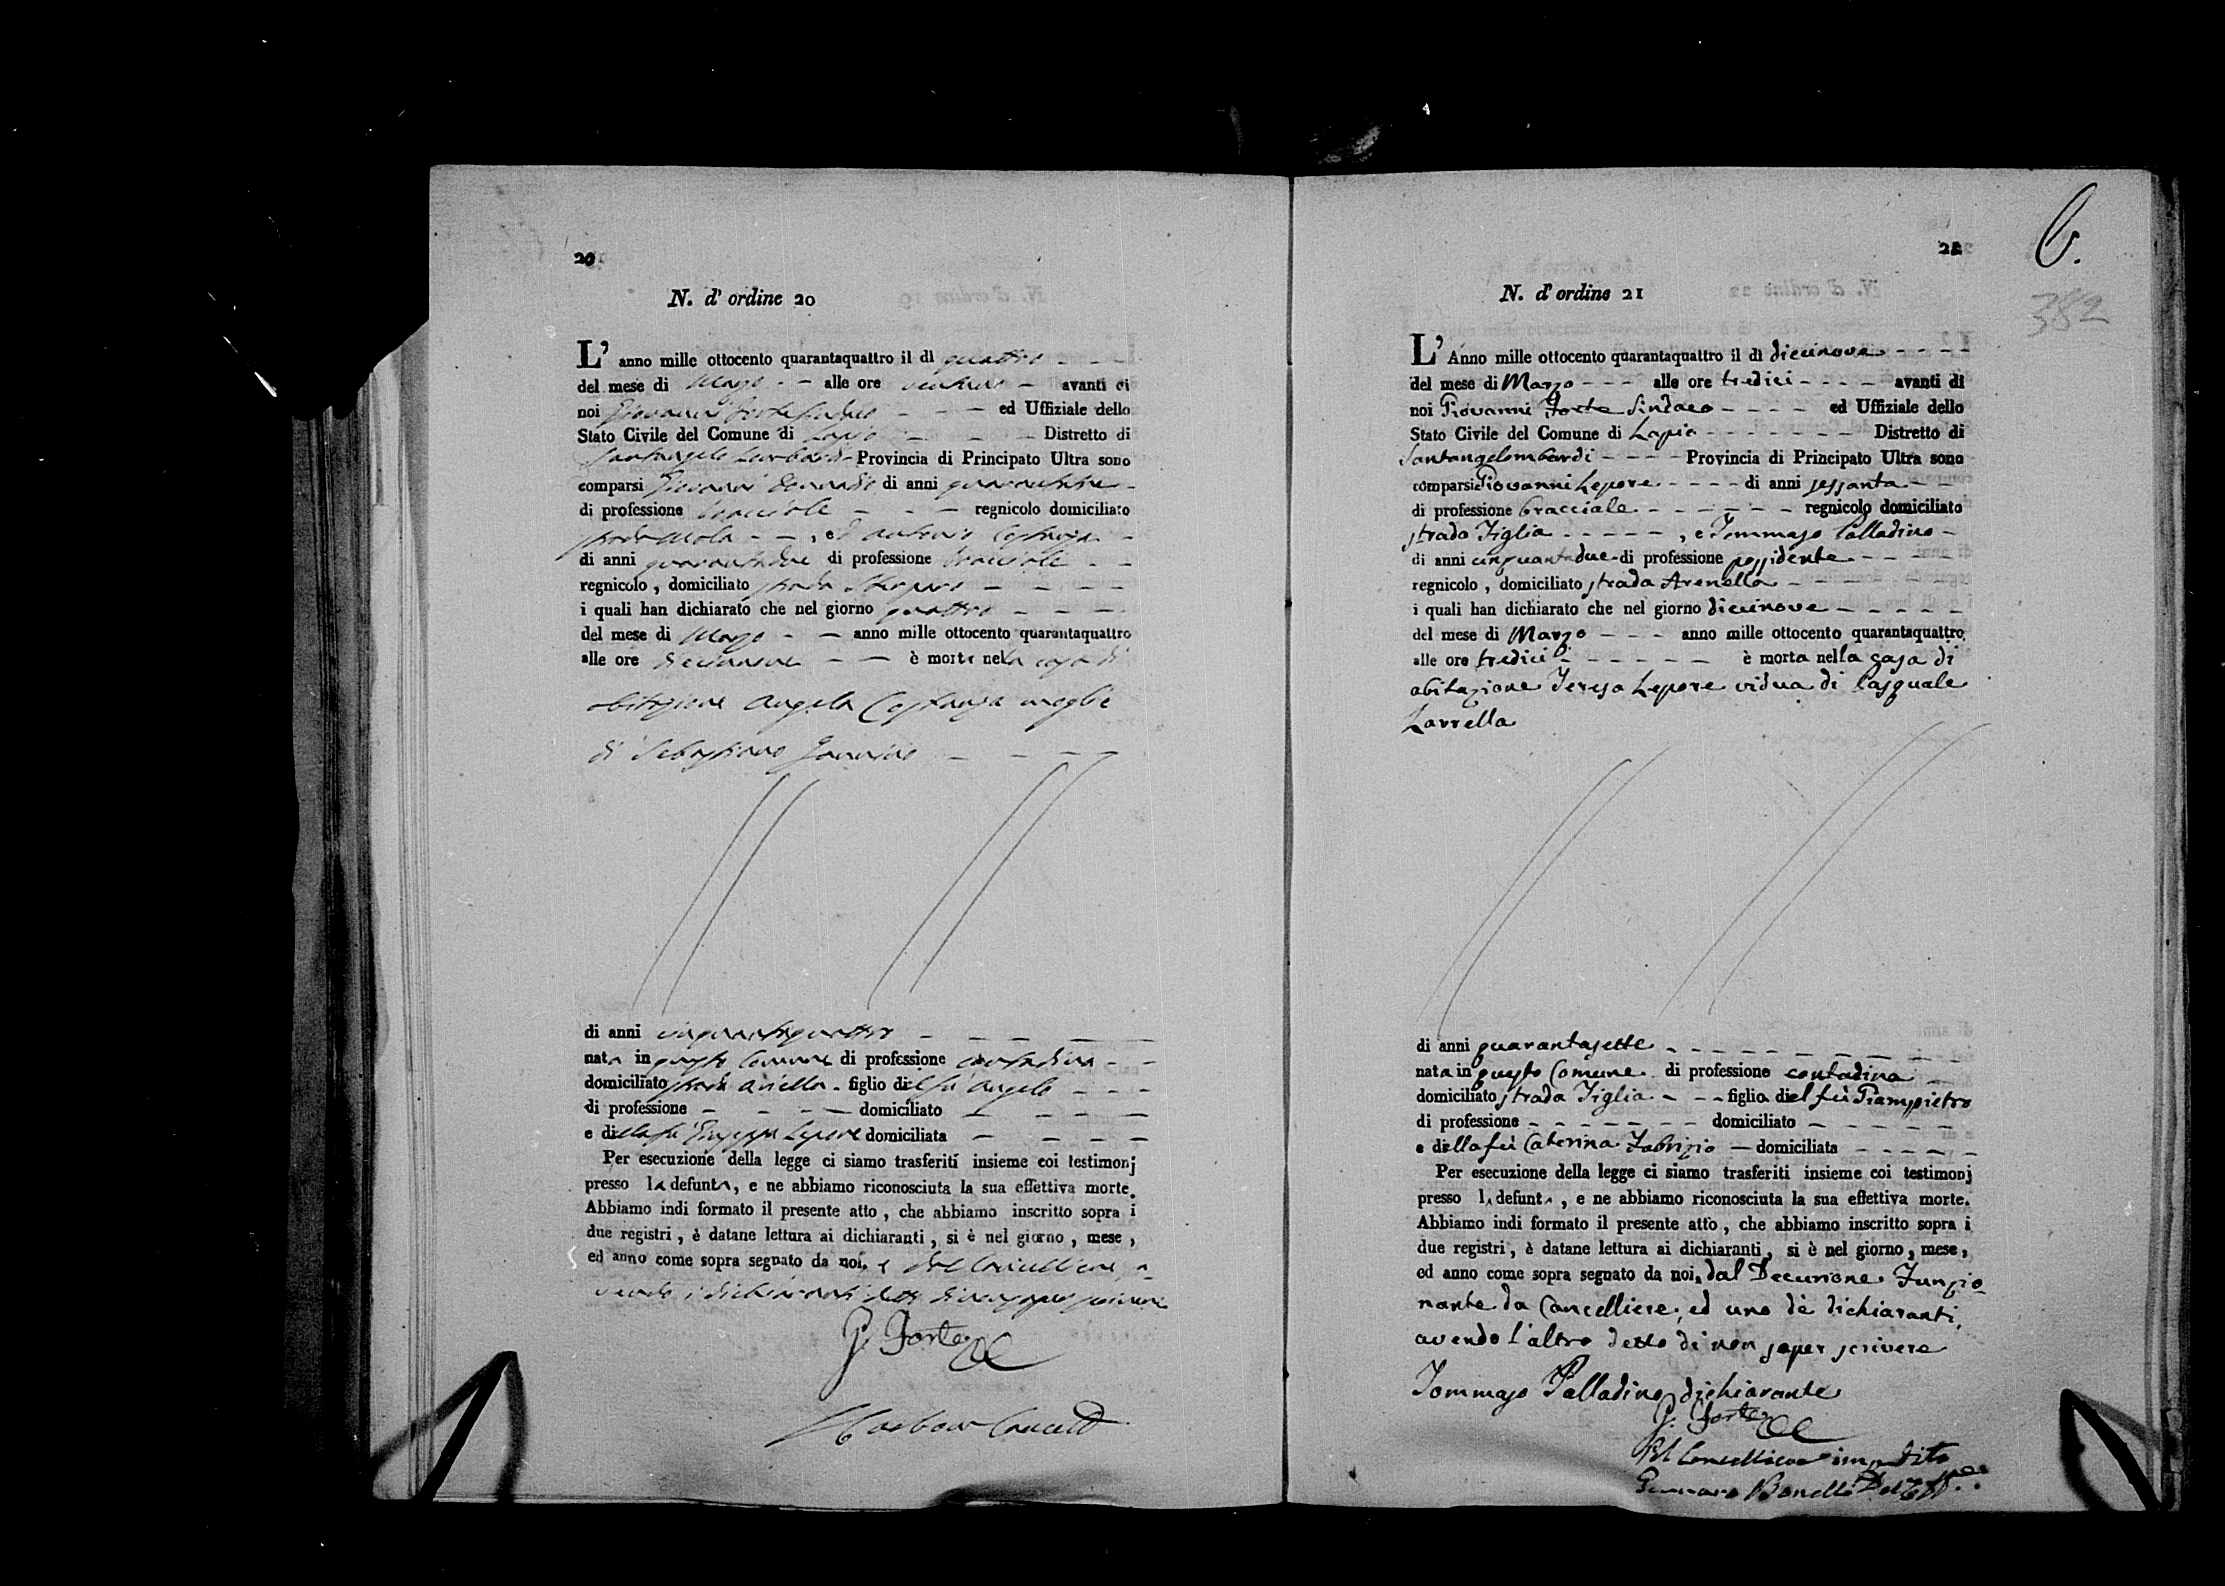 20
N. d' ordine 20
L' anno mille ottocento quarantaquattro il dì quattro
del mese di Marzo alle ore avanti di
noi Giovanni Forte Sindaco ed Uffiziale dello
Stato Civile del Comune di Lapio Distretto di
Santangelo Lombardi Provincia di Principato Ultra sono
comparsi Giovanni di anni
di professione bracciale regnicolo domiciliato
strada Mola , ed Antonio Costanza
di anni quarantadue di professione bracciale
regnicolo , domiciliato strada
i quali han dichiarato che nel giorno quattro
del mese di Marzo anno mille ottocento quarantaquattro
alle ore diecinove è morta nella casa di
abitazione Angela Costanza moglie
di Sebastiano
di anni cinquantaquattro
nata in questo Comune di professione contadina
domiciliato strada figlio del fu Angelo
di professione domiciliato
e della fu Giuseppa Lepore domiciliata
Per esecuzione della legge ci siamo trasferiti insieme coi testimonj
presso la defunta, e ne abbiamo riconosciuta la sua effettiva morte.
Abbiamo indi formato il presente atto , che abbiamo inscritto sopra i
due registri , è datane lettura ai dichiaranti , si è nel giorno , mese ,
ed anno come sopra segnato da noi, e dal Cancelliere a-
vendo i dichiaranti detto di non saper scrivere
G. Forte
21
6.
382
N. d' ordine 21
L' Anno mille ottocento quarantaquattro il dì diecinove
del mese di Marzo alle ore tredici avanti di
noi Giovanni Forte Sindaco ed Uffiziale dello
Stato Civile del Comune di Lapio Distretto di
Santangelombardi Provincia di Principato Ultra sono
comparsi Giovanni Lepore di anni sessanta
di professione bracciale regnicolo domiciliato
strada Figlia , e Tommaso Palladino
di anni cinquantadue di professione possidente
regnicolo , domiciliato strada Arenella
i quali han dichiarato che nel giorno diecinove
del mese di Marzo anno mille ottocento quarantaquattro
alle ore tredici è morta nella casa di
abitazione Teresa Lepore vidua di Pasquale
Zarrella
di anni quarantasette
nata in questo Comune di professione contadina
domiciliato strada Figlia figlia del fù Giampietro
di professione domiciliato
e della fù Caterina Fabrizio domiciliata
Per esecuzione della legge ci siamo trasferiti insieme coi testimonj
presso la defunta , e ne abbiamo riconosciuta la sua effettiva morte.
Abbiamo indi formato il presente atto , che abbiamo inscritto sopra i
due registri , è datane lettura ai dichiaranti , si è nel giorno , mese ,
ed anno come sopra segnato da noi, dal Decurione Funzio-
nante da Cancelliere, ed uno dè dichiaranti,
avendo l'altro detto di non saper scrivere
Tommaso Palladino dichiarante
G. Forte
Pel Cancelliere impedito
Gennaro Bonelli